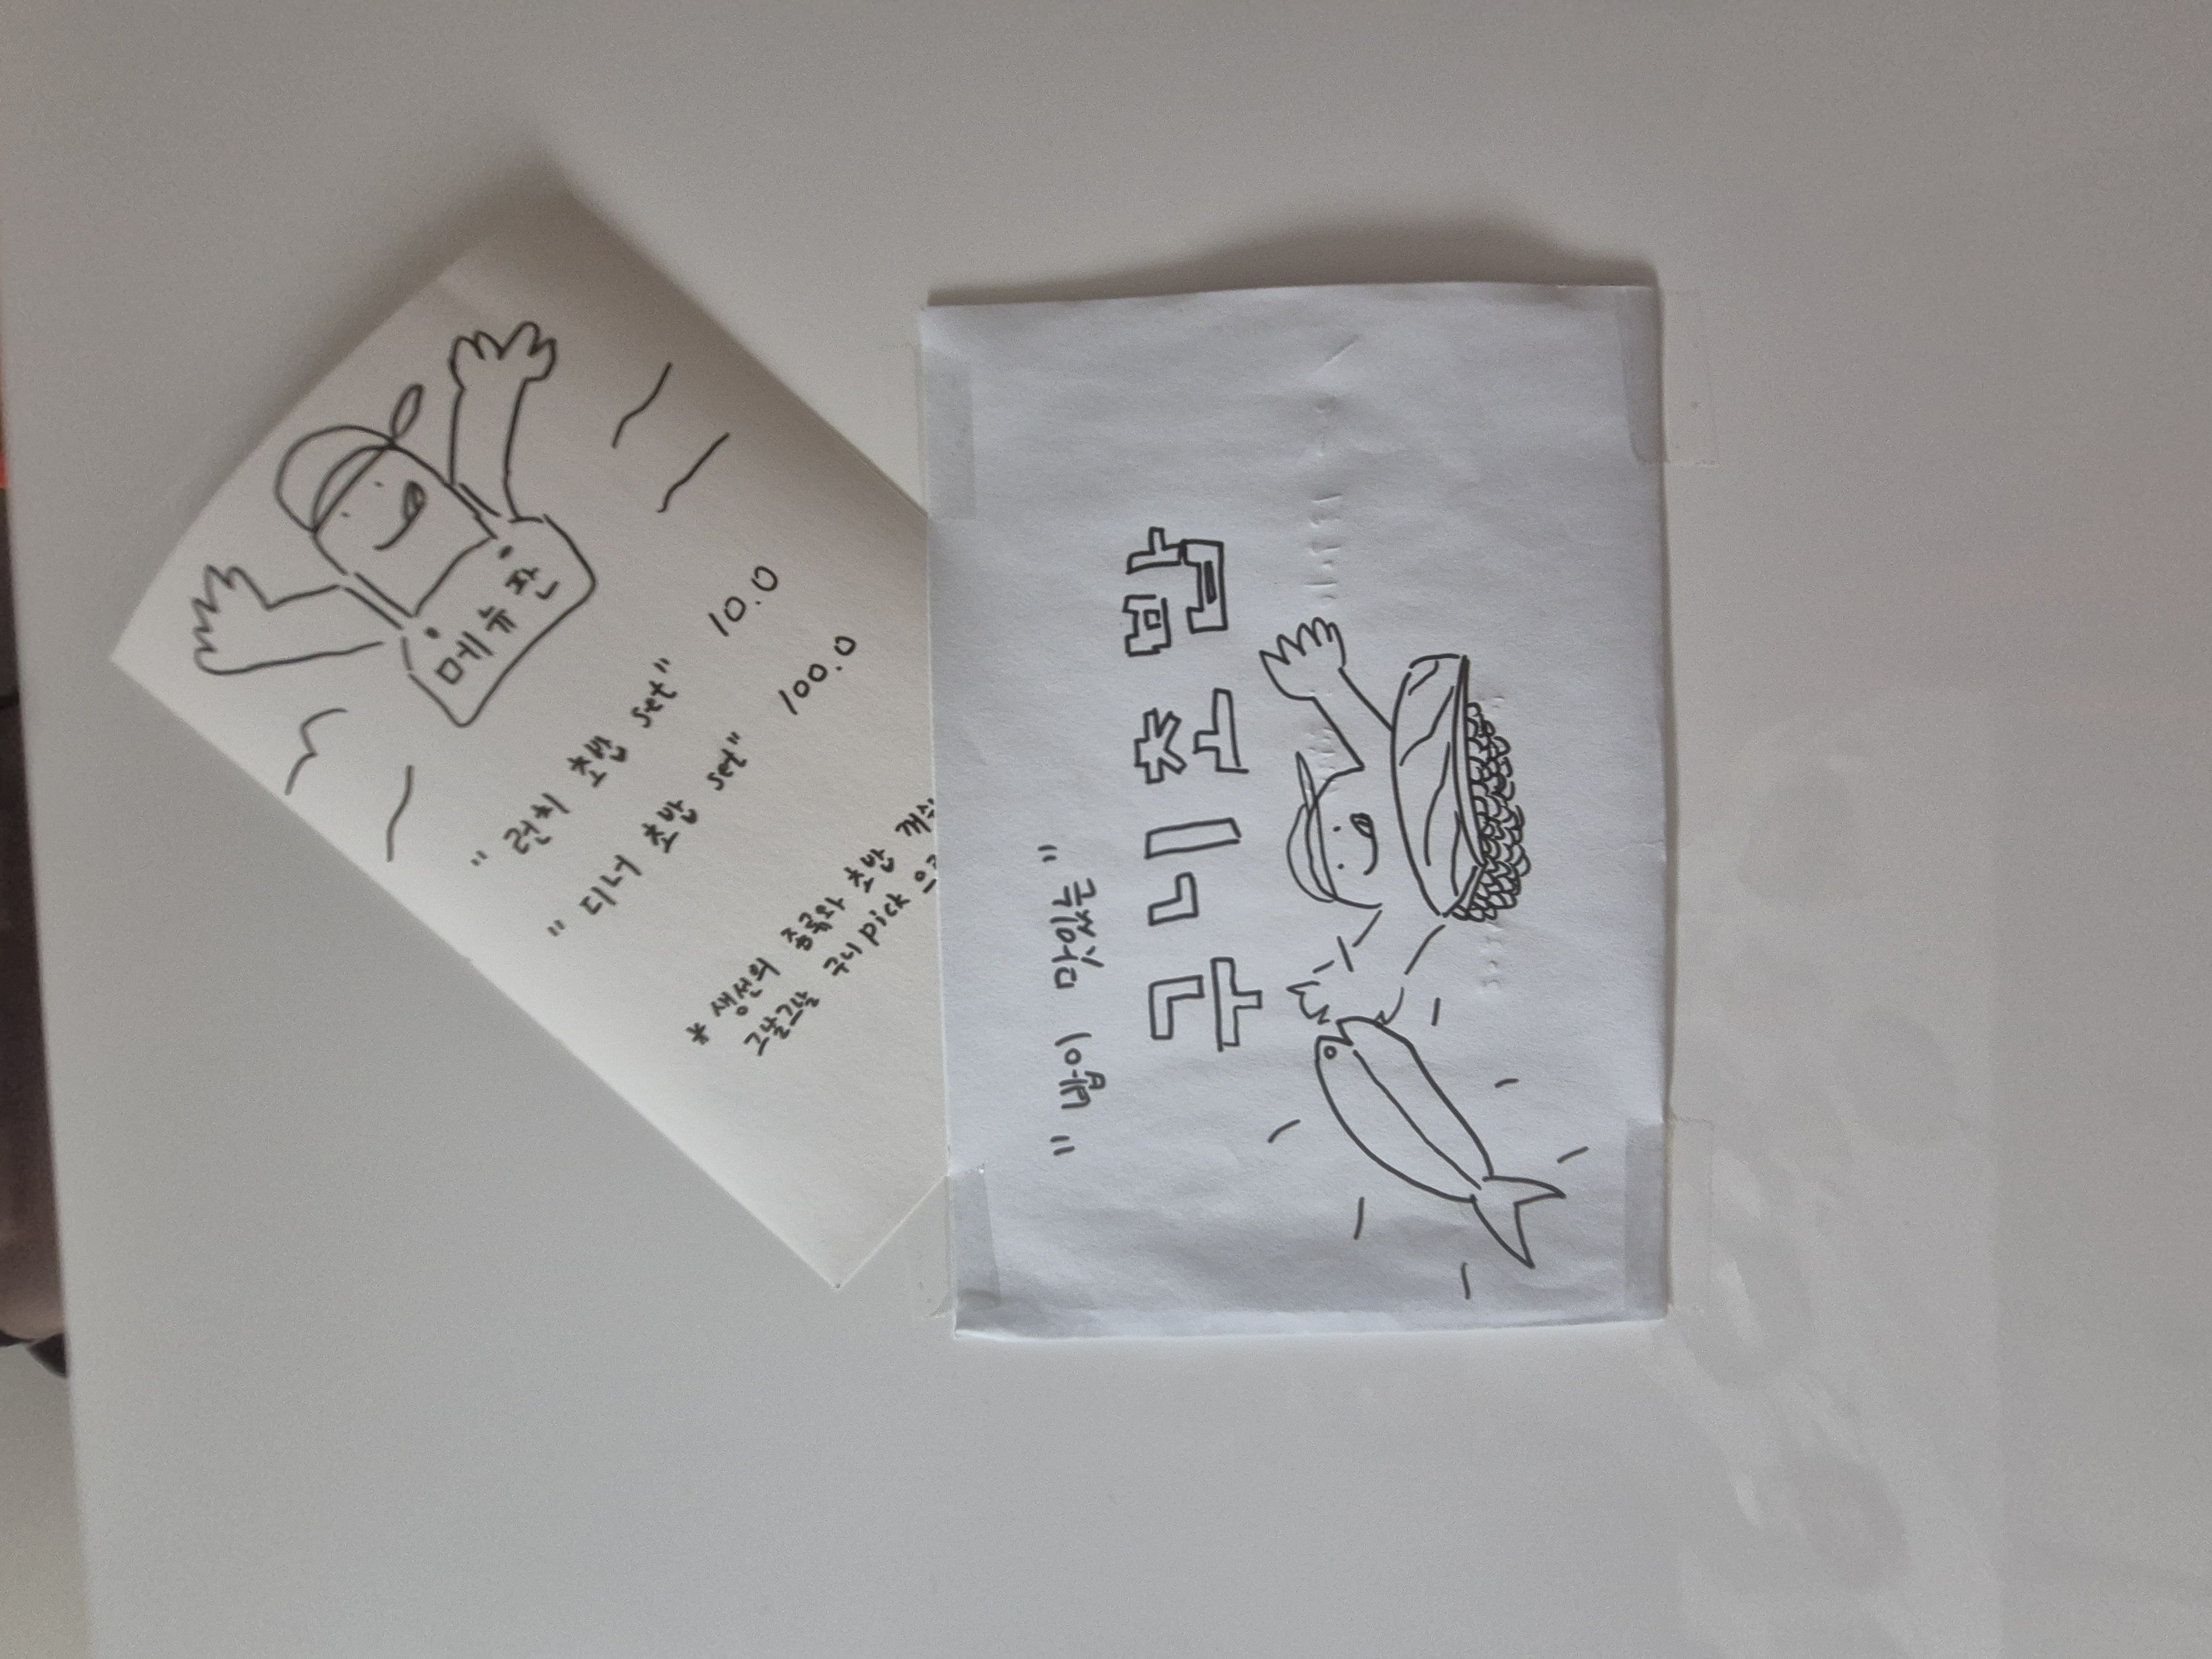 메뉴판
"런치 초밥 set" 10.0
"디너 초밥 set" 100.0
* 생선의 종류와 초밥
그날그날 구니 pick
"밥이 맛있는"
구니초밥